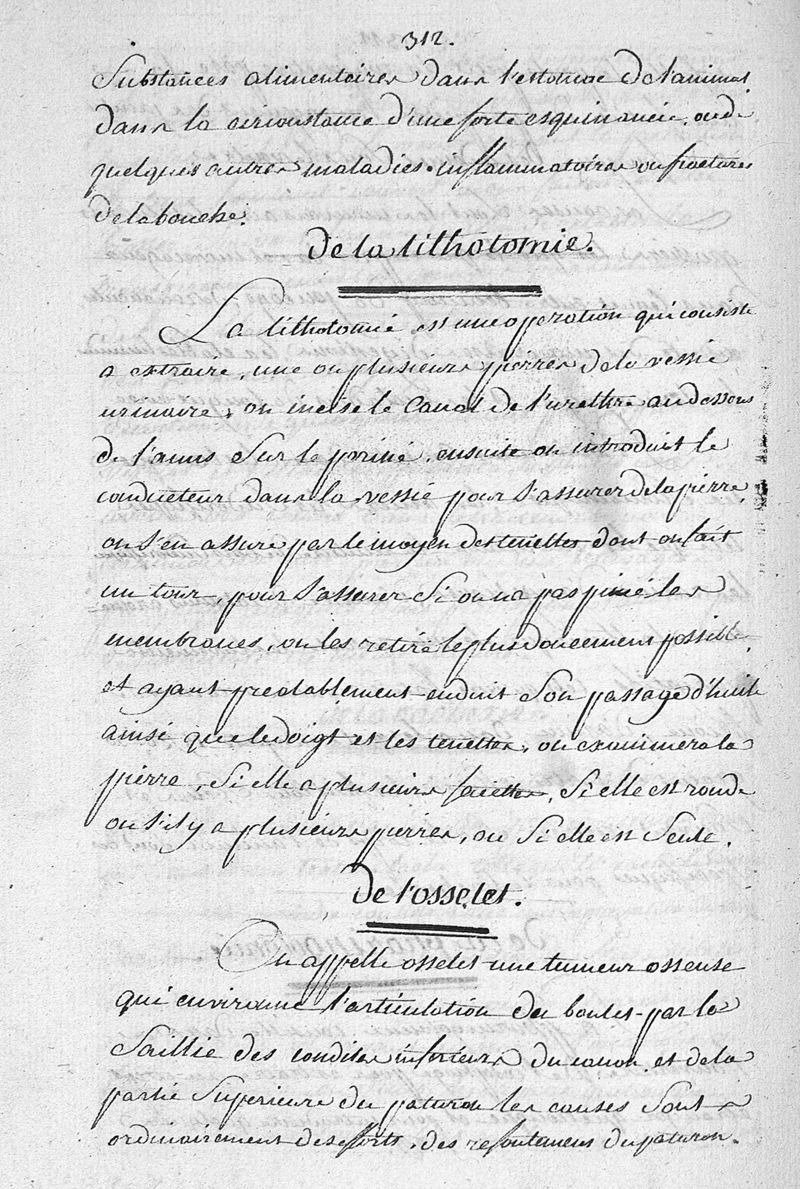 312.
Substances alimentaires dans l'estomac de l'animal
dans la circonstance d'une forte esquinancie, ou de
quelques autres maladies inflammatoires ou fractures
de la bouche.
De la lithotomie.
La lithotomie est une operation qui consiste
a extraire, une ou plusieurs pierres de la vessie
urinaire, on incise le canal de l'urethre au dessous
de l'anus sur le periné, ensuite on introduit le
conducteur dans la vessie pour s'assurer de la pierre,
on s'en assure par le moyen des tenettes dont on fait
un tour, pour s'assurer si on n'a pas pincé les
membranes, on les retire le plus doucement possible
et ayant prealablement enduit son passage d'huile
ainsi que le doigt et les tenettes, on examinera la
pierre, si elle a plusieurs facettes, si elle est ronde
ou s'il y a plusieurs pierres, ou si elle est seule.
De l'osselet.
On appelle osselet une tumeur osseuse
qui environne l'articulation du boulet par la
saillie des condiles inferieurs du canon, et de la
partie superieure du paturon les causes sont
ordinairement des efforts, des refoulemens du paturon.